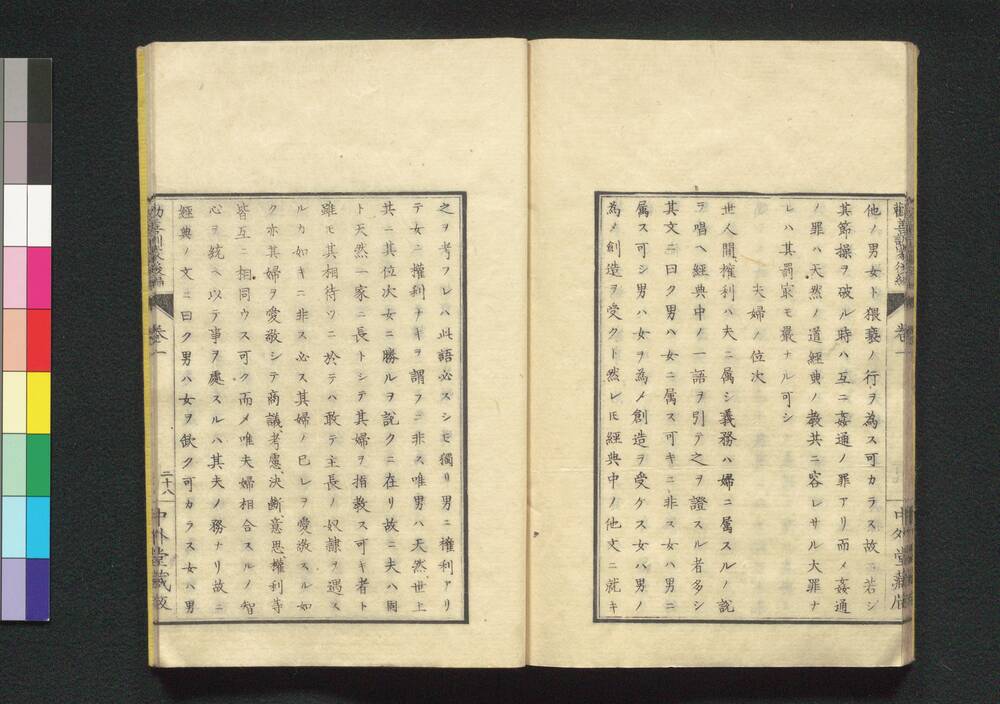 勸善訓蒙後編
卷一
中外堂藏版
他ノ男女ト猥褻ノ行ヲ為ス可カラス故ニ若シ
其節操ヲ破ル時ハ互ニ姦通ノ罪アリ而メ姦通
ノ罪ハ天然ノ道經典ノ教共ニ容レサル大罪ナ
レハ其罰最モ嚴ナル可シ
夫婦ノ位次
世人間權利ハ夫ニ属シ義務ハ婦ニ属スルノ説
ヲ唱ヘ經典中ノ一語ヲ引テ之ヲ證スル者多シ
其文ニ曰ク男ハ女ニ属ス可キニ非ス女ハ男ニ
属ス可シ男ハ女ヲ為メ創造ヲ受ケス女ハ男ノ
為メ創造ヲ受クト然レ𪜈經典中ノ他文ニ就キ
之ヲ考フレハ此語必スシモ獨リ男ニ權利アリ
テ女ニ權利ナキヲ謂フニ非ス唯男ハ天然世上
其ニ其位次女ニ勝ルヲ説クニ在リ故ニ夫ハ固
ト天然一家ニ長トシテ其婦ヲ指教ス可キ者ト
雖モ其相待ツニ於テハ敢テ主長ノ奴隷ヲ遇ス
ルカ如キニ非ス必ス其婦ノ已レヲ愛敬スル如
ク亦其婦ヲ愛敬シテ商議、考慮、決斷、意思、權利等
皆互ニ相同ウス可ク而メ唯夫婦相合スルノ智
心ヲ統ヘ以テ事ヲ處スルハ其夫ノ務ナリ故ニ
經典ノ文ニ曰ク男ハ女ヲ欽ク可カラス女ハ男
勸善訓蒙後編
卷一
二十八
中外堂藏版